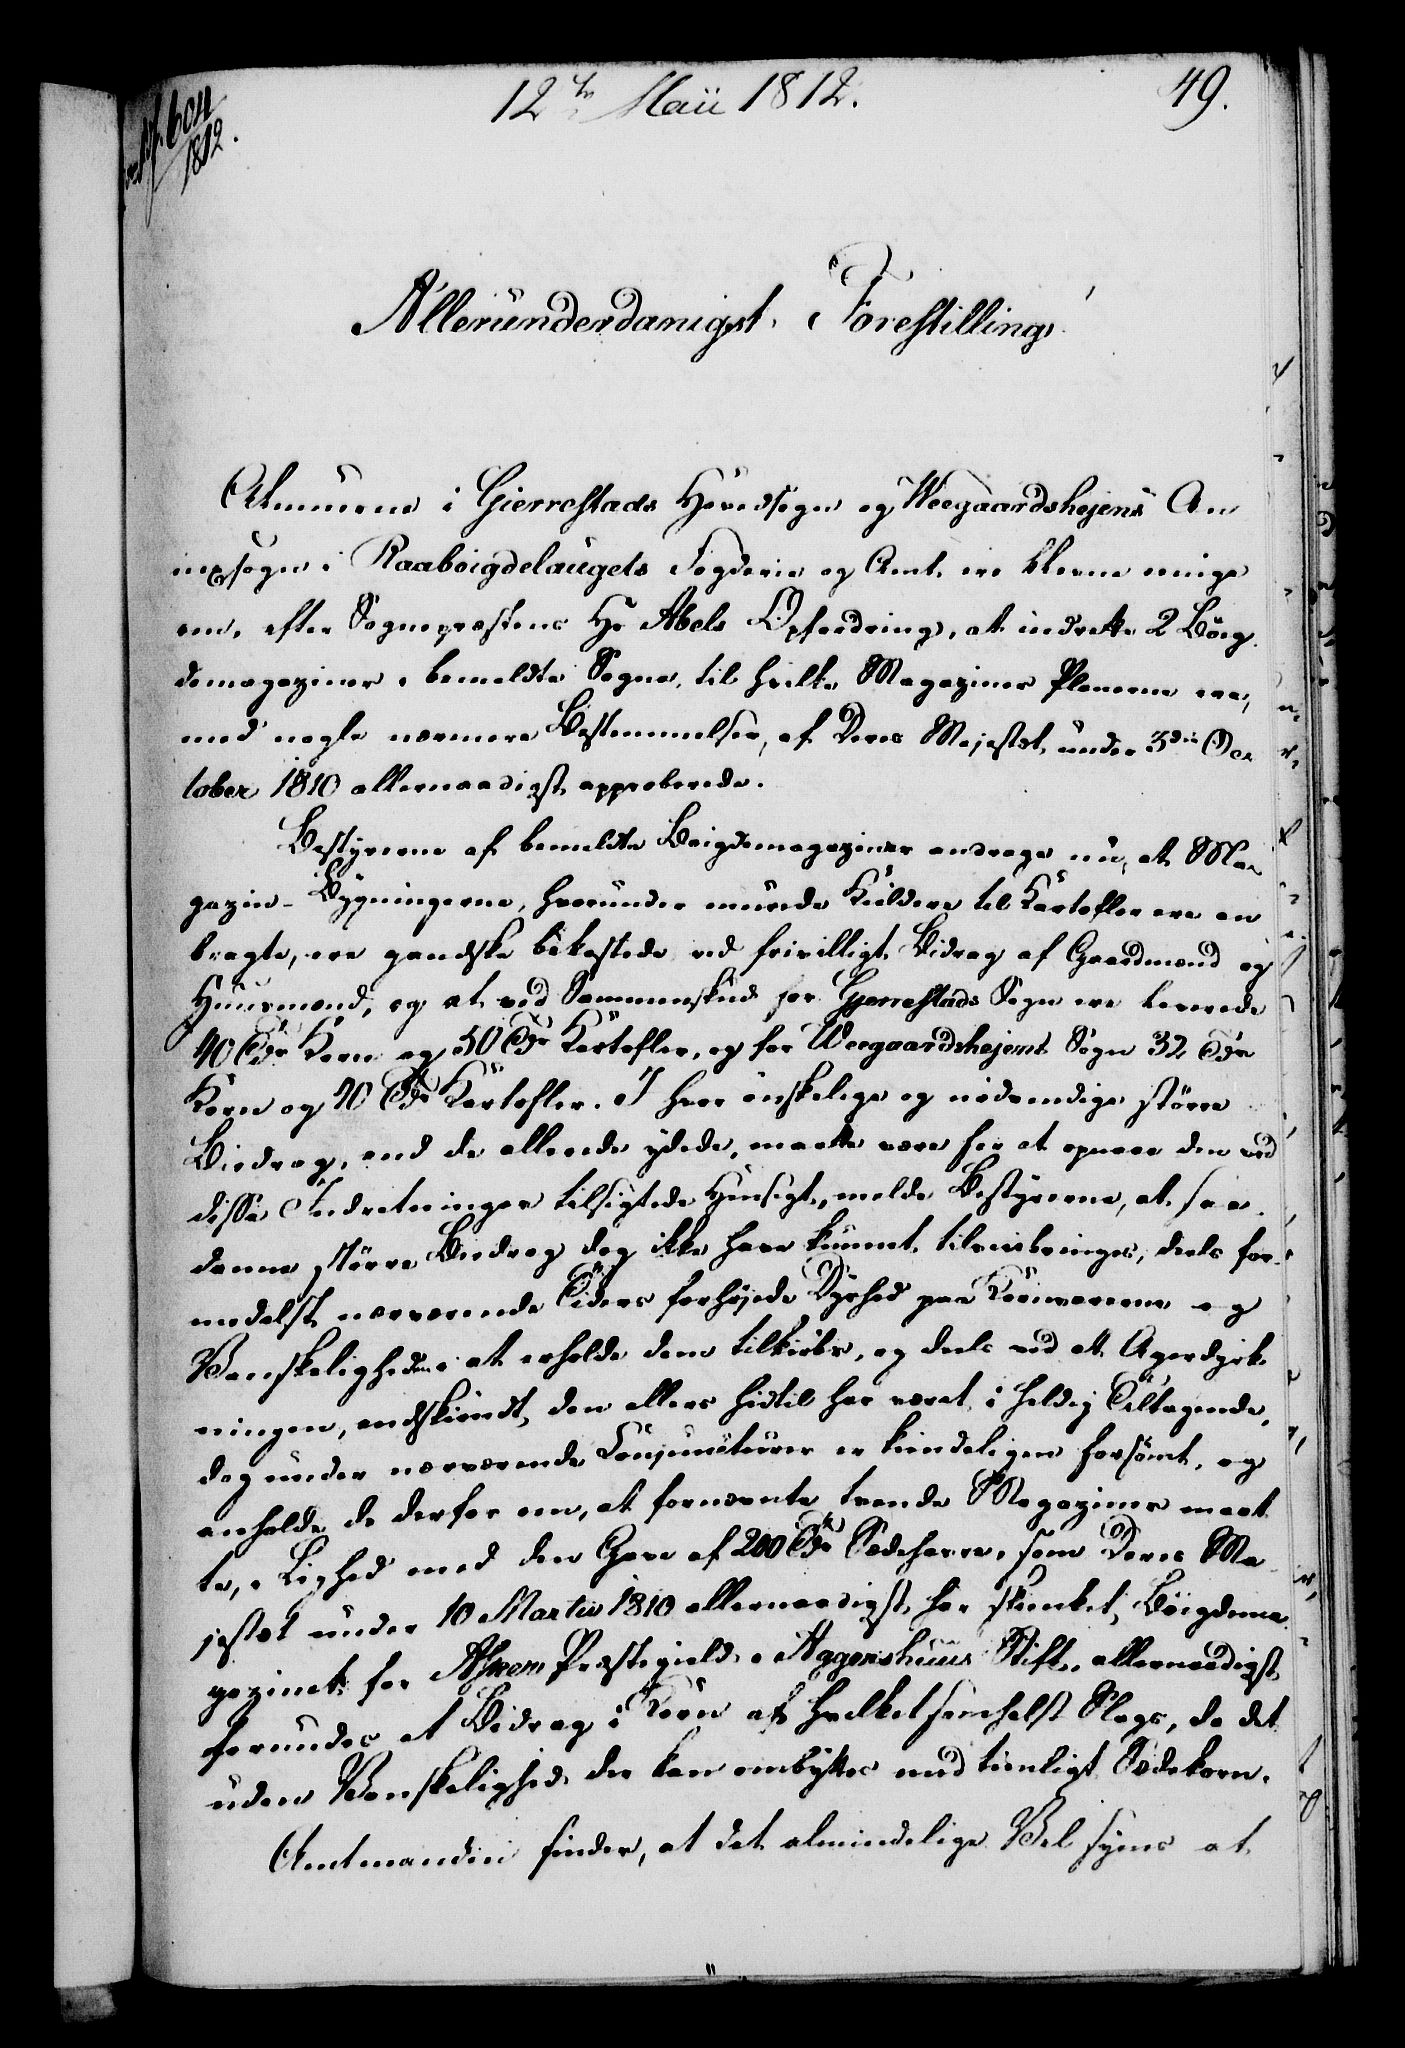 12te Maii 1812.
49.
604
1812.
Allerunderdanigst Forestilling
Almuerne i Gierrestads Hovedsogn og Weegaardshejens An
nexsogn i Raaboigdelaugets Fogderie og Amt ere blevne enige
om, efter Sognepræstens Hr Abels Opfordring, at indrette 2 Böig
demagaziner i bemeldte Sogne, til hvilke Magaziner Planerne ere,
med nogle nærmere Bestemmelser, af Deres Majestæt under 3die Oc
tober 1810 allernaadigst approberede.
Bestyrerne af bemeldte Boigdemagaziner andrage nu, at Ma
gazin-Bygningerne, hvorunder murede Kieldere til Kartofler ere an
bragte, ere gandske bekostede ved frivilligt Bidrag af Gaardmænd og
Huusmænd, og at ved Sammenskud for Gjerrestads Sogn ere leverede
40 Tdr Korn og 50 Tdr Kartofler, og for Weegaardshejens Sogn 32 Tdr
Korn og 40 Tdr Kartofler. I hvor önskelige og nödvendige större
Biedrag, end de allerede ydede, maatte være for at opnaae den ved
disse Indretninger tilsigtede Hensigt, melde Bestyrerne, at saa
danne större Biedrag dog ikke have kunnet tilveiebringes, deels for
medelst nærværende Tiders forhöjede Dyrhed paa Kornvarerne og
Vanskeligheden i at erholde dem tilkiöbs, og deels ved at Agerdyrk
ningen, endskiöndt den ellers hidtil har været i heldig Tiltagende,
dog under nærværende Conjuncturer er kiendeligen forsömt, og
anholde de derfor om, at fornævnte tvende Magaziner maat
te, i Lighed med den Gave af 200 Tdr Sædehavre, som Deres Ma
jestæt under 10 Martii 1810 allernaadigst har skienket Böigdema
gazinet for Præstegield i Aggershuus Stift, allernaadigst
forundes et Bidrag i Korn af hvilketsomhelst Slags, da det
uden Vanskelighed der kan ombyttes med tienligt Sædekorn.
Amtmanden finder, at det almindelige Vel synes at